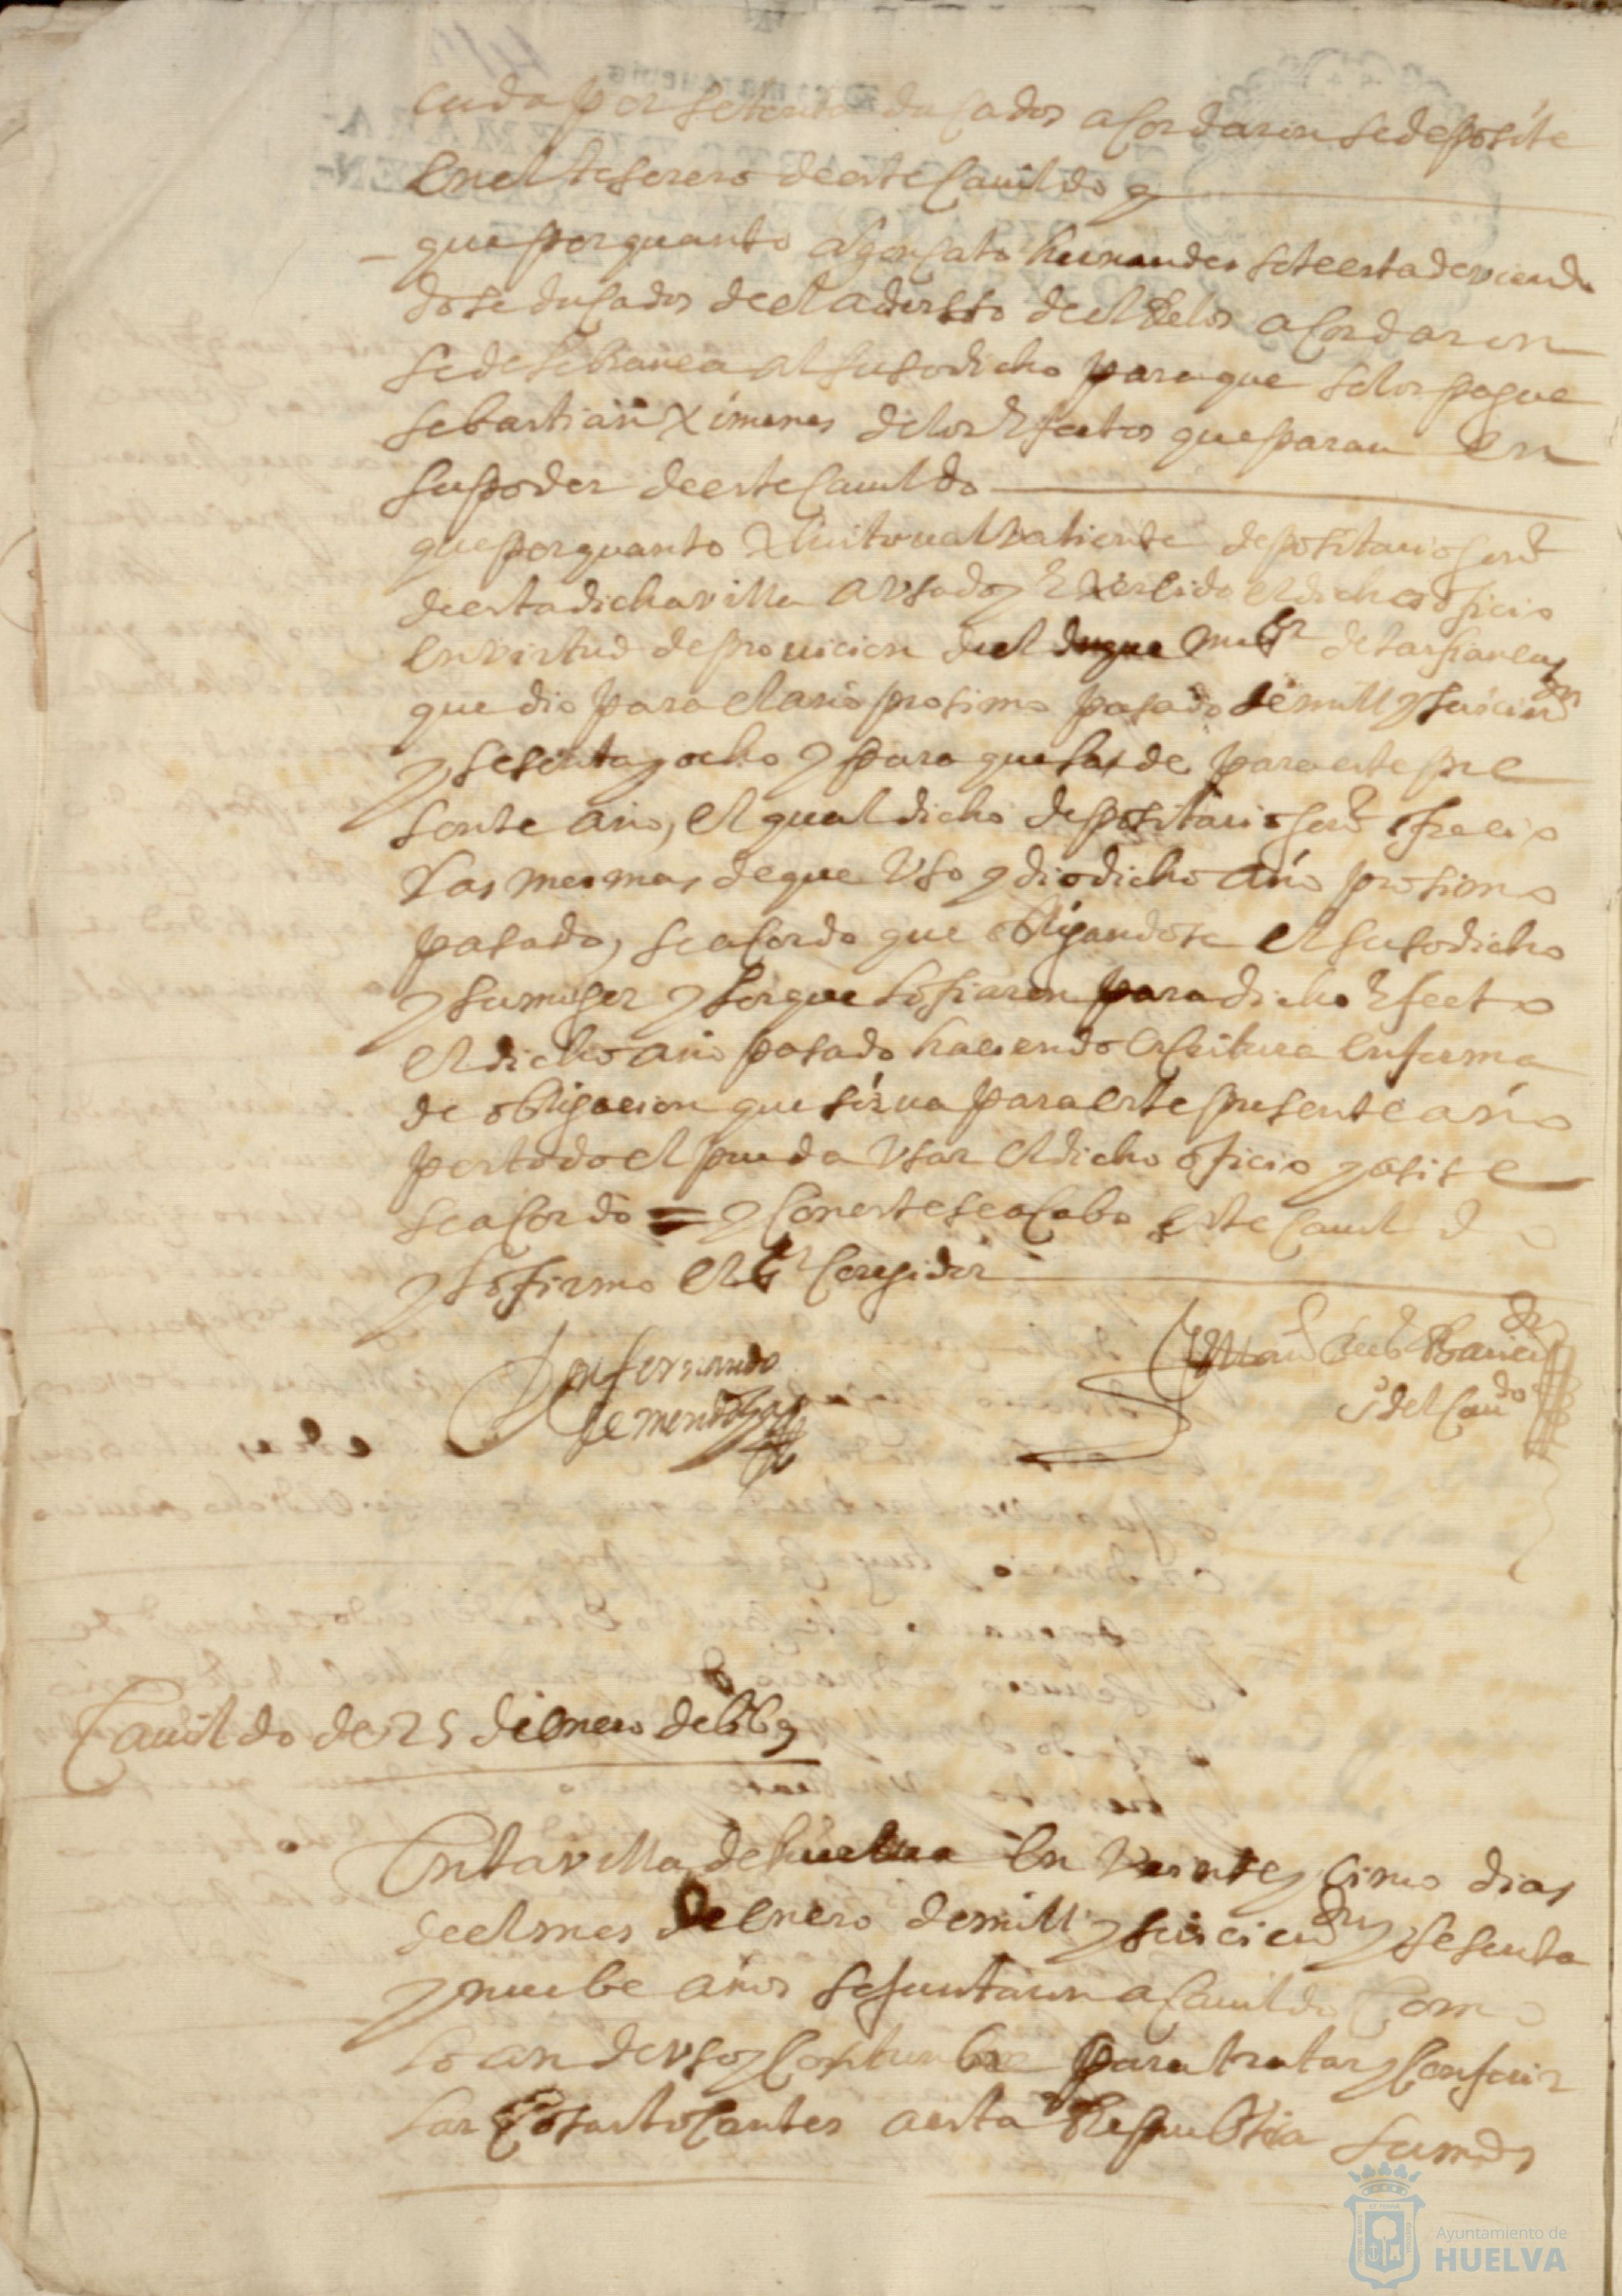 cuda por setenta ducados acordaron se deposite
en el tesorero de este Cauildo y
que por quanto a Gonsalo hernandes se le esta deuiendo
dose ducados de el adresso de el Relox acordaron
se de libranca al susodicho para que se los pague
sebastian Ximenes de los Efectos que paran en
su poder de este Cauildo
que por quanto Xpistoual Valiente depositario genl
de esta dicha villa a vsado y Exercido el dicho oficio
en virtud de prouicion del duque mi Sr de las fiancas
que dio para el año prosimo pasado de mill y seiscientos
y sesenta y ocho y para que las de para este pre
sente año, el qual dicho depositario genl ofrecio
las mesmas de que vso y dio dicho año prosimo
pasado, se acordo que obligandose el susodicho
y su muger y los que lo fiaron para dicho Efecto
el dicho año pasado haciendo escritura en forma
de obligacion que sirua para este presente año
por todo el pueda vsar el dicho oficio y asi se
se acordo = y con este se acabo este Cauildo
y lo firmo el Sr Coregidor
Don fernando
de mendoza
So del Caudo
Cauildo de 25 de enero de 669
En la villa de huelua en veinte y cinco dias
de el mes de enero de mill y seiscientos y sesenta
y nuebe años se juntaron a Cauildo Como
lo an de vso y Costumbre para tratar y Conferir
las Cosas tocantes a esta Republica sus mds
Ayuntamiento de
HUELVA